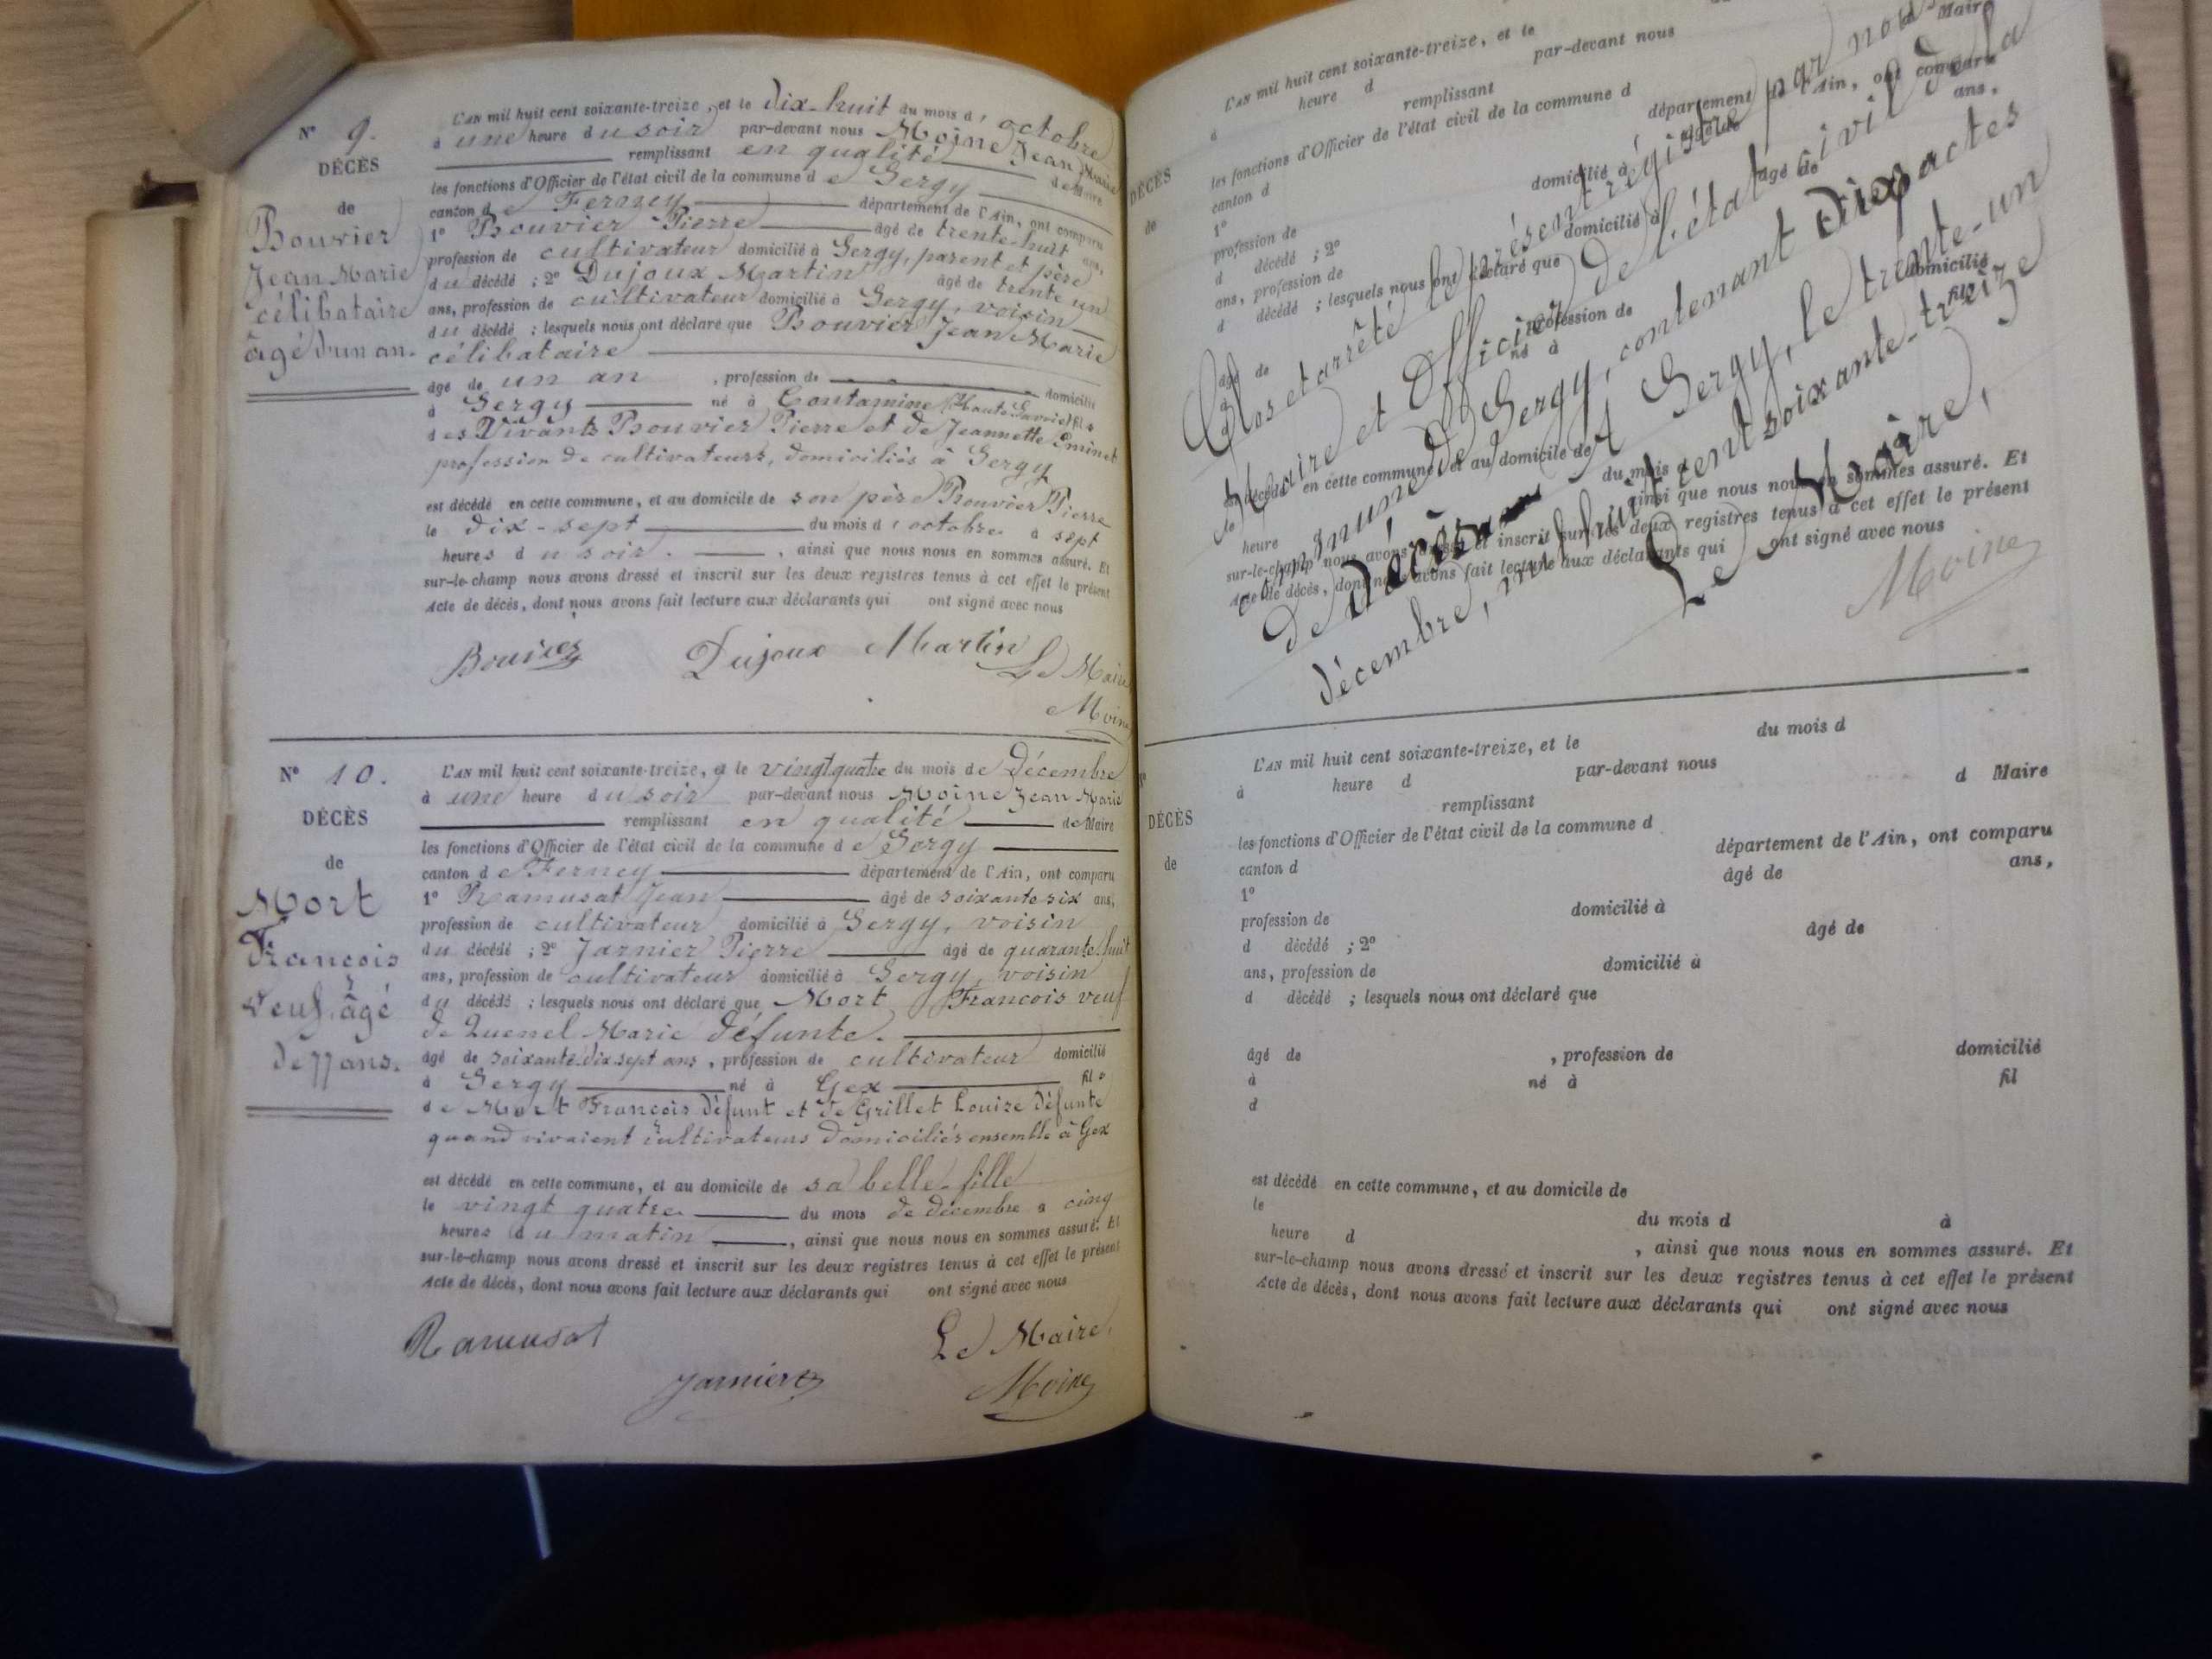 N° 9.
DÉCÈS
de
Bouvier
Jean Marie
célibataire
âgé d'un an.
L'AN mil huit cent soixante-treize, et le dix-huit du mois d'octobre
à une heure du soir par-devant nous Moine Jean Marie
remplissant en qualité de Maire
les fonctions d'Officier de l'état civil de la commune de Sergy
canton de Ferney département de l'Ain, ont comparu
1° Bouvier Pierre âgé de trente-huit ans,
profession de cultivateur domicilié à Sergy, parent et père
du décédé ; 2° Dujoux Martin âgé de trente un
ans, profession de cultivateur domicilié à Sergy, voisin
du décédé ; lesquels nous ont déclaré que Bouvier Jean Marie
célibataire
âgé de un an , profession de domicilié
à Sergy né à Contamine (Haute Savoie) fils
des Vivants Bouvier Pierre et de Jeannette Eminet
profession de cultivateurs, domiciliés à Sergy
est décédé en cette commune, et au domicile de son père Bouvier Pierre
le dix-sept du mois d'octobre à sept
heures du soir. , ainsi que nous nous en sommes assuré. Et
sur-le-champ nous avons dressé et inscrit sur les deux registres tenus à cet effet le présent
Acte de décès, dont nous avons fait lecture aux déclarants qui ont signé avec nous
Bouvier Dujoux Martin Le Maire
Moine
N° 10.
DÉCÈS
de
Mort
François
veuf, âgé
de 77 ans.
L'AN mil huit cent soixante-treize, et le vingt quatre du mois de Décembre
à une heure du soir par-devant nous Moine Jean Marie
remplissant en qualité de Maire
les fonctions d'Officier de l'état civil de la commune de Sergy
canton de Ferney département de l'Ain, ont comparu
1° Ramusat Jean âgé de soixante six ans,
profession de cultivateur domicilié à Sergy, voisin
du décédé ; 2° Jarnier Pierre âgé de quarante huit
ans, profession de cultivateur domicilié à Sergy, voisin
du décédé ; lesquels nous ont déclaré que Mort François veuf
de Quenel Marie défunte.
âgé de soixante dix sept ans , profession de cultivateur domicilié
à Sergy né à Gex fils
de Mort François défunt et de Grillet Louize défunte
quand vivaient cultivateurs domiciliés ensemble à Gex
est décédé en cette commune, et au domicile de sa belle-fille
le vingt quatre du mois de décembre à cinq
heures du matin , ainsi que nous nous en sommes assuré. Et
sur-le-champ nous avons dressé et inscrit sur les deux registres tenus à cet effet le présent
Acte de décès, dont nous avons fait lecture aux déclarants qui ont signé avec nous
Ramusat Le Maire,
Jarnier Moine
L'AN mil huit cent soixante-treize, et le
à heure d par-devant nous
remplissant d Maire
les fonctions d'Officier de l'état civil de la commune d
canton d département de l'Ain, ont comparu
DÉCÈS
de
1° âgé de ans,
profession de domicilié à
d décédé ; 2° âgé de
ans, profession de domicilié à
d décédé ; lesquels nous ont déclaré que
âgé de profession de domicilié
à né à fil
est décédé en cette commune, et au domicile de
le du mois d
heure ainsi que nous nous en sommes assuré. Et
sur-le-champ nous avons dressé et inscrit sur les deux registres tenus à cet effet le présent
Acte de décès, dont nous avons fait lecture aux déclarants qui ont signé avec nous
Clos et arrêté le présent régistre par nous
Maire et Officier de l'état civil de la
commune de Sergy, contenant dix actes
de décès A Sergy, le trente-un
décembre, mil huit cent soixante-treize
Le Maire,
Moine
N°
DÉCÈS
de
L'AN mil huit cent soixante-treize, et le du mois d
à heure d par-devant nous
remplissant d Maire
les fonctions d'Officier de l'état civil de la commune d
canton d département de l'Ain, ont comparu
1° âgé de ans,
profession de domicilié à
d décédé ; 2° âgé de
ans, profession de domicilié à
d décédé ; lesquels nous ont déclaré que
âgé de , profession de domicilié
à né à fil
d
est décédé en cette commune, et au domicile de
le du mois d à
heure d , ainsi que nous nous en sommes assuré. Et
sur-le-champ nous avons dressé et inscrit sur les deux registres tenus à cet effet le présent
Acte de décès, dont nous avons fait lecture aux déclarants qui ont signé avec nous